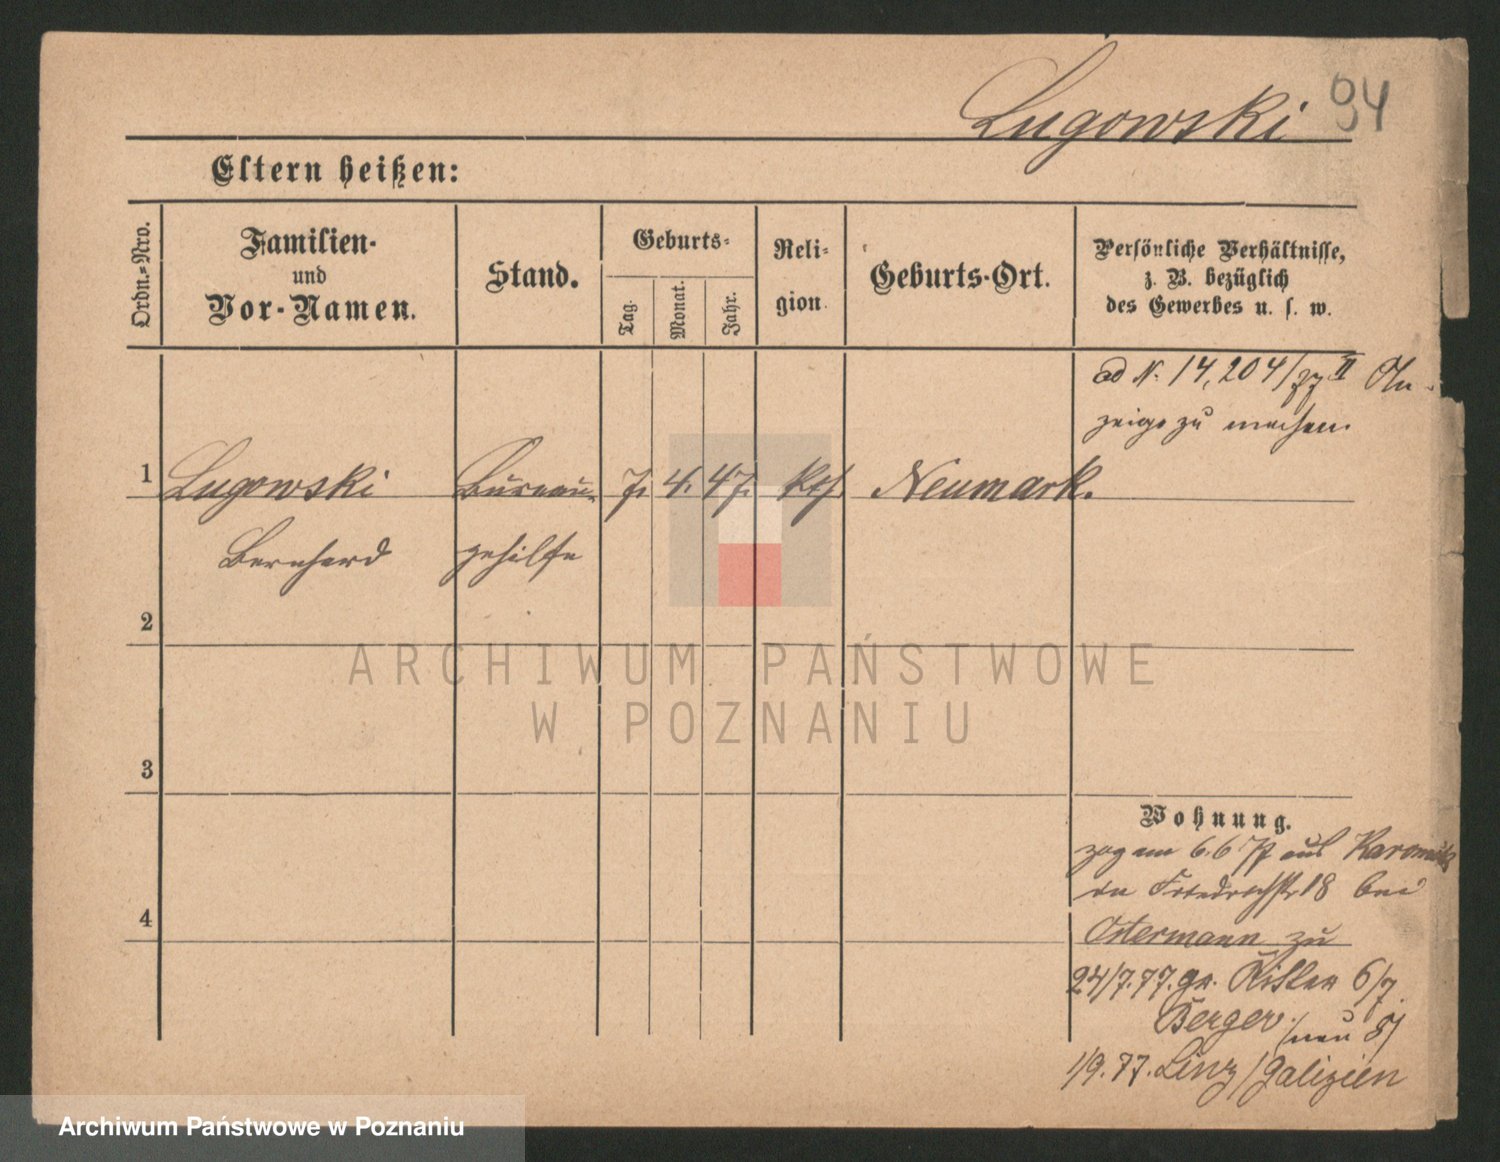 Lugowski 94
Eltern heißen:
Ordn.-Nro.
Familien-
und
Vor-Namen.
Stand.
Geburts-
Tag.
Monat.
Jahr.
Reli-
gion.
Geburts-Ort.
Persönliche Verhältnisse,
z. B. bezüglich
des Gewerbes u. s. w.
ad N. 14,204/77 II An-
zeige zu machen.
1 Lugowski Bureau- 7. 4. 47. kth Neumark.
Bernhard gehilfe
2
3
4
Wohnung.
zog am 6.6 77 aus
in Friedrichstr 18 bei
Ostermann zu
24/7.77. gr. Ritter 6/7.
Berger (neu 8)
1/9. 77. Linz / Galizien
ARCHIWUM PAŃSTWOWE
W POZNANIU
Archiwum Państwowe w Poznaniu